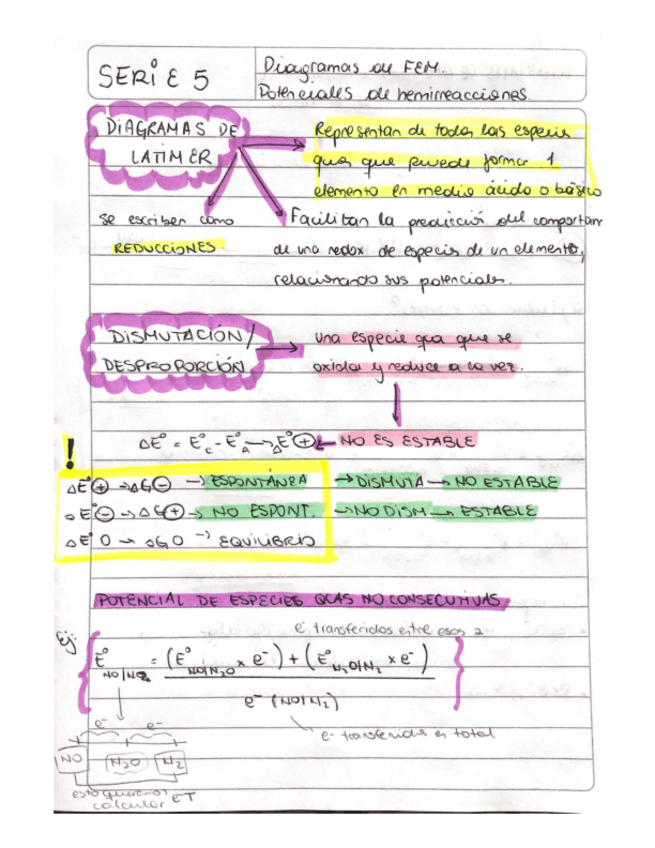 SERIE 5
Diagramas de FEM.
Potenciales de hemirreacciones.
DIAGRAMAS DE
LATIMER
Representan de todas las especie
quas que puede formar 1
elemento en medio ácido o básico
se escriben como
REDUCCIONES
Facilitan la predicción del comportam
de una redox de especies de un elemento,
relacionando sus potenciales.
DISMUTACIÓN/
DESPROPORCIÓN
una especie qca que se
oxida y reduce a la vez.
ΔE° = E°c - E°A → ΔE° ⊕ ← NO ES ESTABLE
!
ΔE° ⊕ → ΔG ⊖ → ESPONTÁNEA → DISMUTA → NO ESTABLE
ΔE° ⊖ → ΔG ⊕ → NO ESPONT. → NO DISM → ESTABLE
ΔE° 0 → ΔG 0 → EQUILIBRIO
POTENCIAL DE ESPECIES QCAS NO CONSECUTIVAS.
e- transferidos entre esos 2
Ej:
E° NO/N2 = (E° NO/N2O × e-) + (E° N2O/N2 × e-)
e- (NO/N2)
e- transferidos en total
e- e-
NO N2O N2
esto queremos
calcular eT